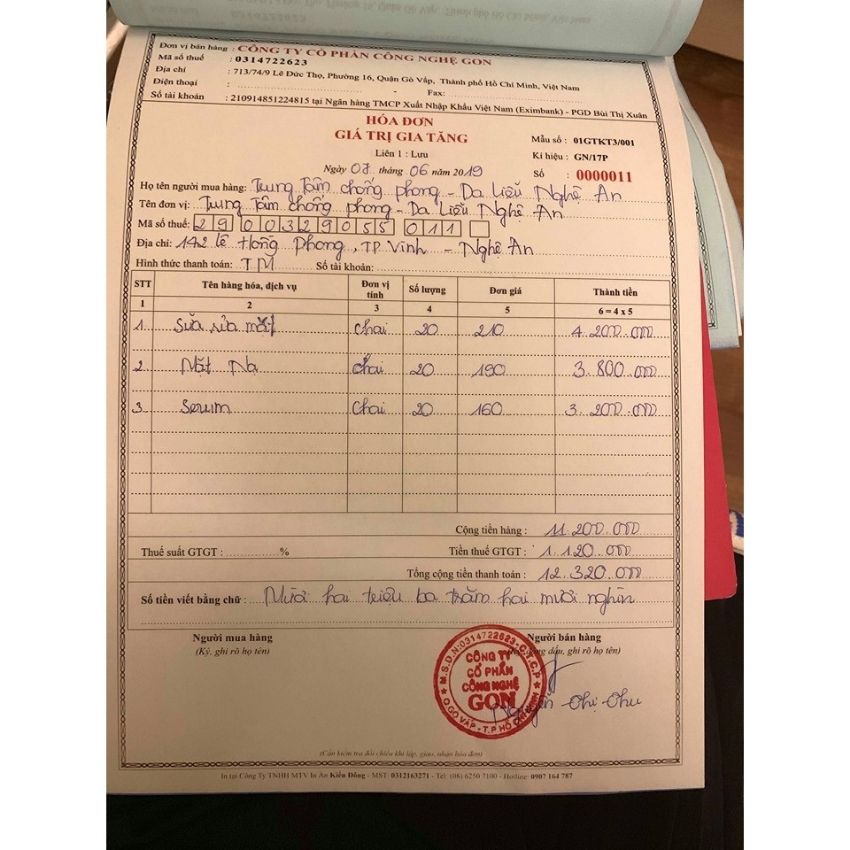 Đơn vị bán hàng : CÔNG TY CỔ PHẦN CÔNG NGHỆ GON
Mã số thuế : 0314722623
Địa chỉ : 713/74/9 Lê Đức Thọ, Phường 16, Quận Gò Vấp, Thành phố Hồ Chí Minh, Việt Nam
Điện thoại : - Fax:
Số tài khoản : 210914851224815 tại Ngân hàng TMCP Xuất Nhập Khẩu Việt Nam (Eximbank) - PGD Bùi Thị Xuân
HÓA ĐƠN
GIÁ TRỊ GIA TĂNG
Mẫu số : 01GTKT3/001
Liên 1 : Lưu
Kí hiệu : GN/17P
Ngày 07 tháng 06 năm 2019
Số : 0000011
Họ tên người mua hàng: Trung tâm chống phong - Da Liễu Nghệ An
Tên đơn vị: Trung tâm chống phong - Da Liễu Nghệ An
Mã số thuế: 2900329055 011
Địa chỉ: 142 Lê Hồng Phong, TP Vinh - Nghệ An
Hình thức thanh toán: TM Số tài khoản:
STT Tên hàng hóa, dịch vụ Đơn vị tính Số lượng Đơn giá Thành tiền
1 2 3 4 5 6 = 4 x 5
1 Sữa rửa mặt chai 20 210 4.200.000
2 Mặt Nạ chai 20 190 3.800.000
3 Serum chai 20 160 3.200.000
Cộng tiền hàng : 11.200.000
Thuế suất GTGT : % Tiền thuế GTGT : 1.120.000
Tổng cộng tiền thanh toán : 12.320.000
Số tiền viết bằng chữ : Mười hai triệu ba trăm hai mươi nghìn
Người mua hàng Người bán hàng
(Ký, ghi rõ họ tên) đóng dấu, ghi rõ họ tên)
M.S.D.N:0314722623-C.T.C.P
CÔNG TY
CỔ PHẦN
CÔNG NGHỆ
GON
Q.GÒ VẤP - T.P HỒ CHÍ MINH
Nguyễn Thị Thu
(Cần kiểm tra đối chiếu khi lập, giao, nhận hóa đơn)
In tại Công Ty TNHH MTV In Ấn Kiến Đồng - MST: 0312163271 - Tel: (08) 6250 7100 - Hotline: 0907 164 787